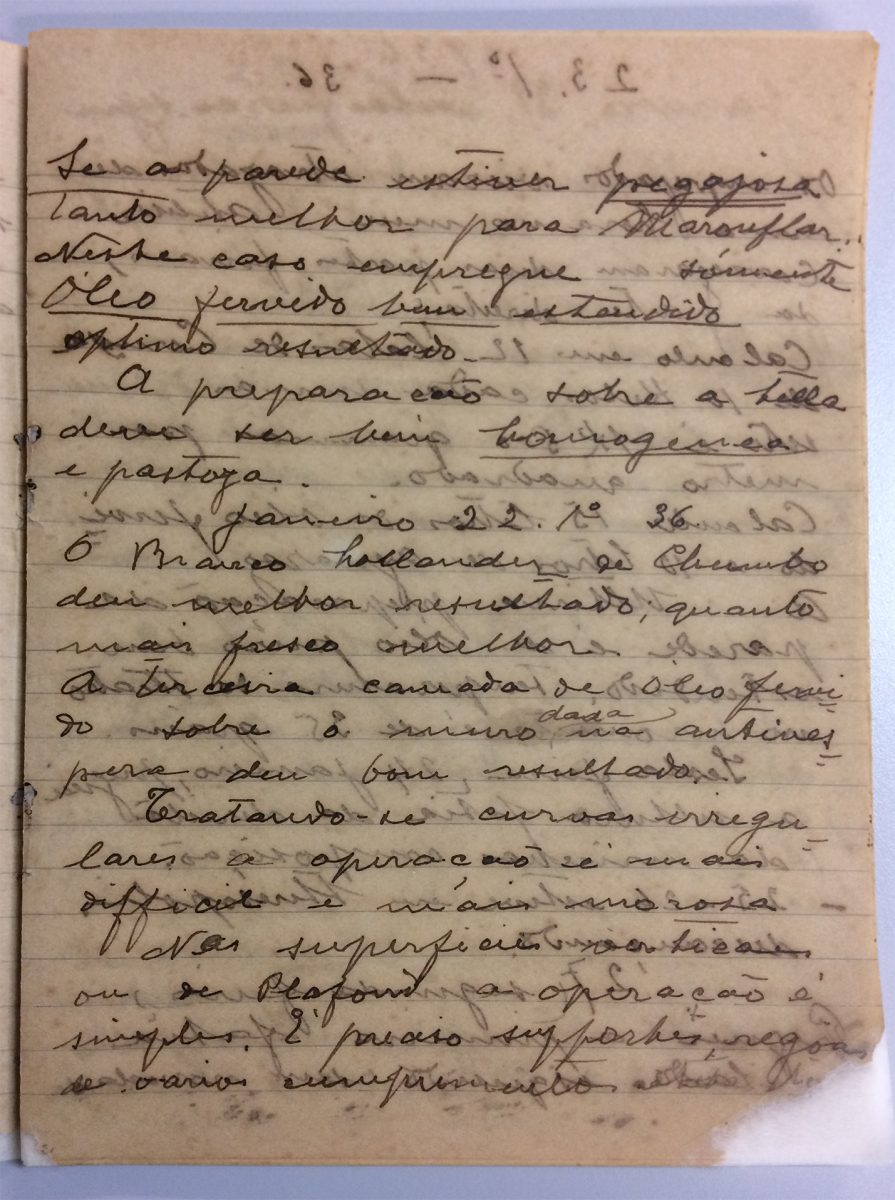 Se a parede estiver pegajosa
tanto melhor para Marouflar.
Neste caso empregue sómente
Óleo fervido bem estendido
optimo resultado.
A preparacão sobre a tella
deve ser bem homogenea
e pastoza.
Janeiro 22. 1º 36
O Branco hollandez de Chumbo
deu melhor resultado; quanto
mais fresco melhor.
A terceira camada de Óleo fervi
do sobre o muro dada na antives
pera deu bom resultado.
Tratando-se curvas irregu-
lares a operação é mais
difficil e mais morosa
Nas superficies verticaes
ou de Plafond a operacão é
simples. É preciso supportes, regoas
de varios cumprimentos